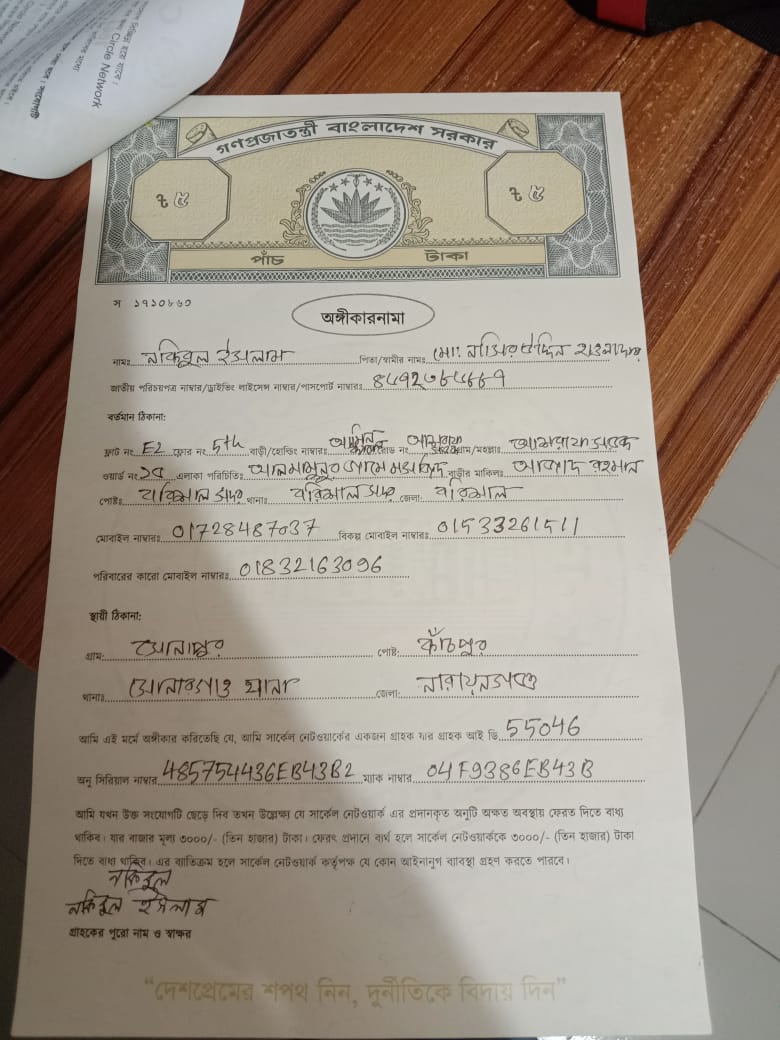 Circle Network
গণপ্রজাতন্ত্রী বাংলাদেশ সরকার
৳ ৫ ৳ ৫
পাঁচ টাকা
স ১৭১০৮৬৩
অঙ্গীকারনামা
নামঃ নকিবুল ইসলাম পিতা/স্বামীর নামঃ মোঃ নাসির উদ্দিন হাওলাদার
জাতীয় পরিচয়পত্র নাম্বার/ড্রাইভিং লাইসেন্স নাম্বার/পাসপোর্ট নাম্বারঃ
বর্তমান ঠিকানা:
ফ্লাট নংঃ E2 ফ্লোর নংঃ 5th বাড়ী/হোল্ডিং নাম্বারঃ আমিন রোড নংঃ গ্রাম/মহল্লাঃ
ওয়ার্ড নংঃ এলাকা পরিচিতিঃ আল মামুনুর জামে মসজিদ বাড়ীর মালিকঃ আজাদ রহমান
পোষ্টঃ বরিশাল সদর থানাঃ বরিশাল সদর জেলা: বরিশাল
মোবাইল নাম্বারঃ 01728487037 বিকল্প মোবাইল নাম্বারঃ 01533261511
পরিবারের কারো মোবাইল নাম্বারঃ 01832163096
স্থায়ী ঠিকানা:
গ্রাম: সোনাপুর পোষ্ট: কাঁচপুর
থানাঃ সোনারগাও থানা জেলা: নারায়নগঞ্জ
আমি এই মর্মে অঙ্গীকার করিতেছি যে, আমি সার্কেল নেটওয়ার্কের একজন গ্রাহক যার গ্রাহক আই ডি 55046
অনু সিরিয়াল নাম্বার 485754436EB43B2 ম্যাক নাম্বার 04F9386EB43B
আমি যখন উক্ত সংযোগটি ছেড়ে দিব তখন উল্লেখ্য যে সার্কেল নেটওয়ার্ক এর প্রদানকৃত অনুটি অক্ষত অবস্থায় ফেরত দিতে বাধ্য
থাকিব। যার বাজার মূল্য ৩০০০/- (তিন হাজার) টাকা। ফেরৎ প্রদানে ব্যর্থ হলে সার্কেল নেটওয়ার্ককে ৩০০০/- (তিন হাজার) টাকা
দিতে বাধ্য থাকিব। এর ব্যতিক্রম হলে সার্কেল নেটওয়ার্ক কর্তৃপক্ষ যে কোন আইনানুগ ব্যাবস্থা গ্রহণ করতে পারবে।
নকিবুল
নকিবুল ইসলাম
গ্রাহকের পুরো নাম ও স্বাক্ষর
“দেশপ্রেমের শপথ নিন, দুর্নীতিকে বিদায় দিন”